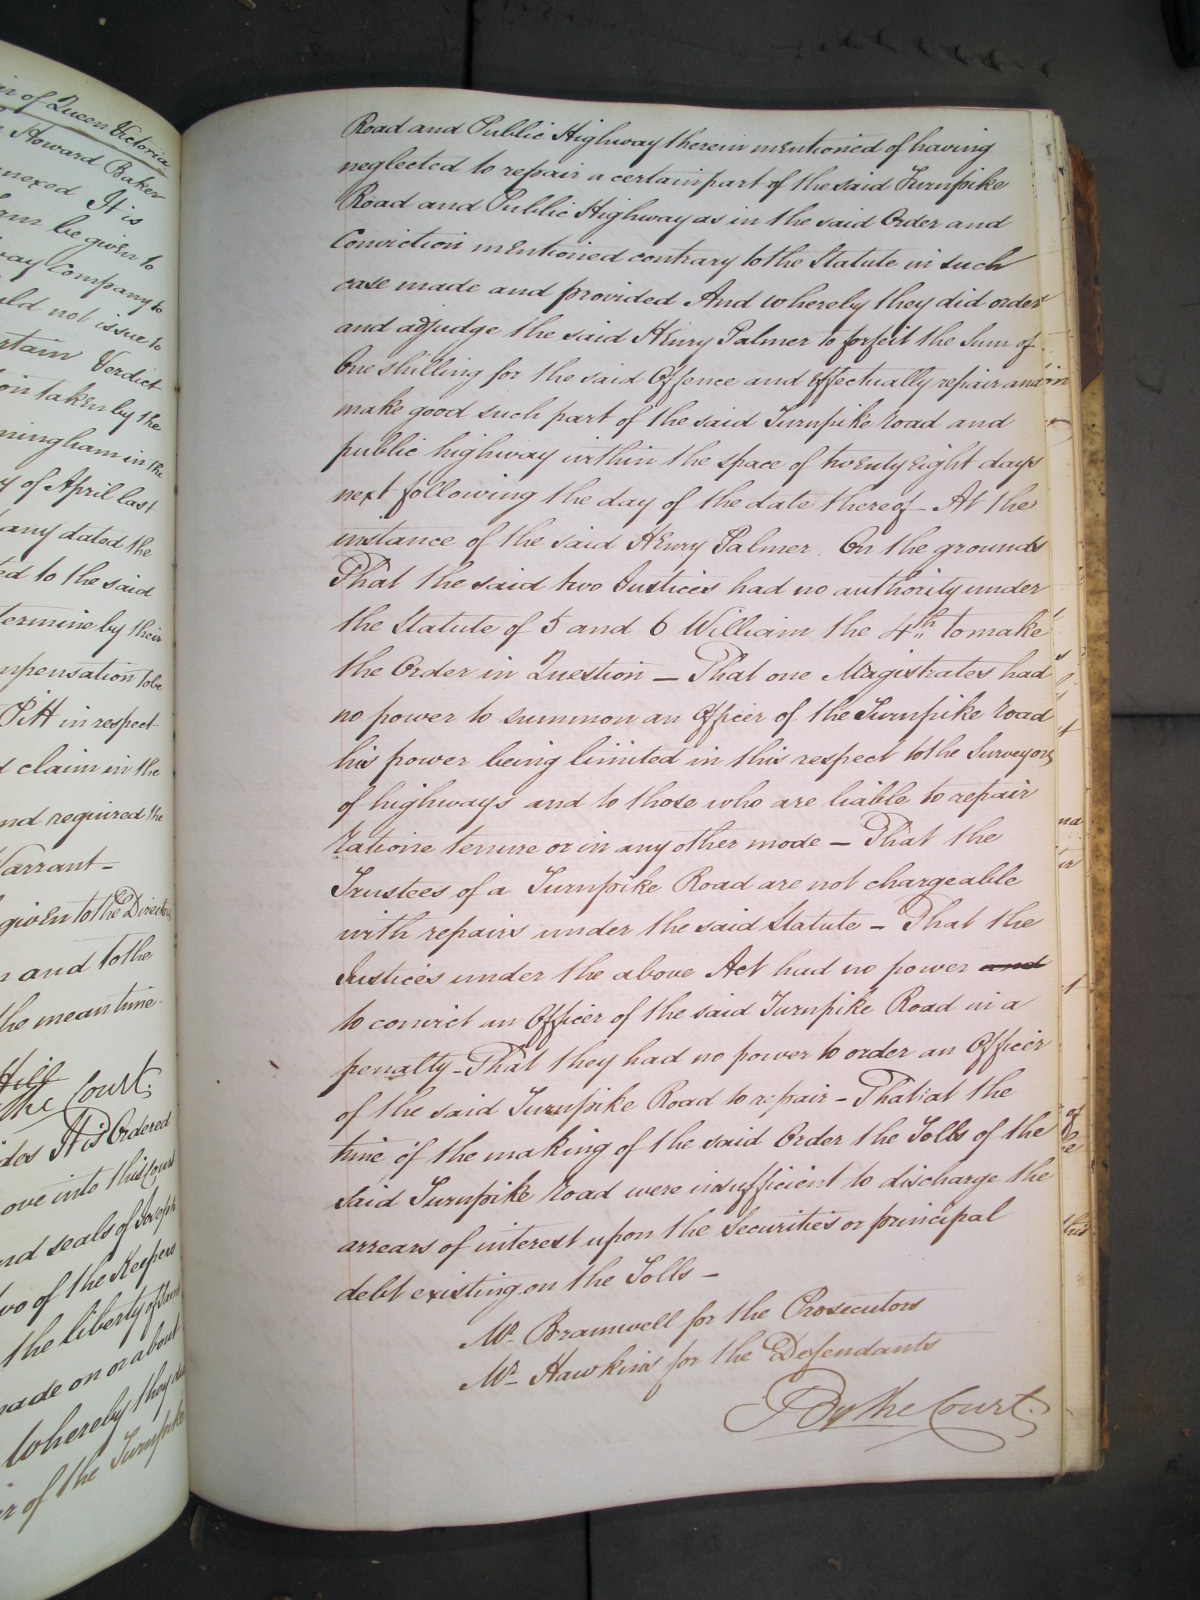 of Queen Victoria
Howard Baker
It is
be given to
Company to
not issue to
Verdict
taken by the
in the
of April last
dated the
to the said
by their
to be
in respect
claim in the
required the
Warrant -
given to the Directors
and to the
the mean time
Hill
the Court
It is Ordered
into this Court
and seals of Joseph
two of the Keepers
the liberty of
made on or about
Whereby they did
of the Turnpike
Road and Public Highway therein mentioned of having
neglected to repair a certain part of the said Turnpike
Road and Public Highway as in the said Order and
Conviction mentioned contrary to the Statute in such
case made and provided And whereby they did order
and adjudge the said Henry Palmer to forfeit the Sum of
One shilling for the said Offence and effectually repair and
make good such part of the said Turnpike road and
public highway within the space of twenty eight days
next following the day of the date thereof - At the
instance of the said Henry Palmer. On the grounds
That the said two Justices had no authority under
the Statute of 5 and 6 William the 4th to make
the Order in Question - That one Magistrates had
no power to summon an Officer of the Turnpike road
his power being limited in this respect to the Surveyors
of highways and to those who are liable to repair
ratione tenure or in any other mode - That the
Trustees of a Turnpike Road are not chargeable
with repairs under the said Statute - That the
Justices under the above Act had no power and
to convict an Officer of the said Turnpike Road in a
penalty - That they had no power to order an Officer
of the said Turnpike Road to repair - That at the
time of the making of the said Order the Tolls of the
said Turnpike road were insufficient to discharge the
arrears of interest upon the securities or principal
debt existing on the Tolls -
Mr. Bramwell for the Prosecutors
Mr. Hawkins for the Defendants
By the Court.